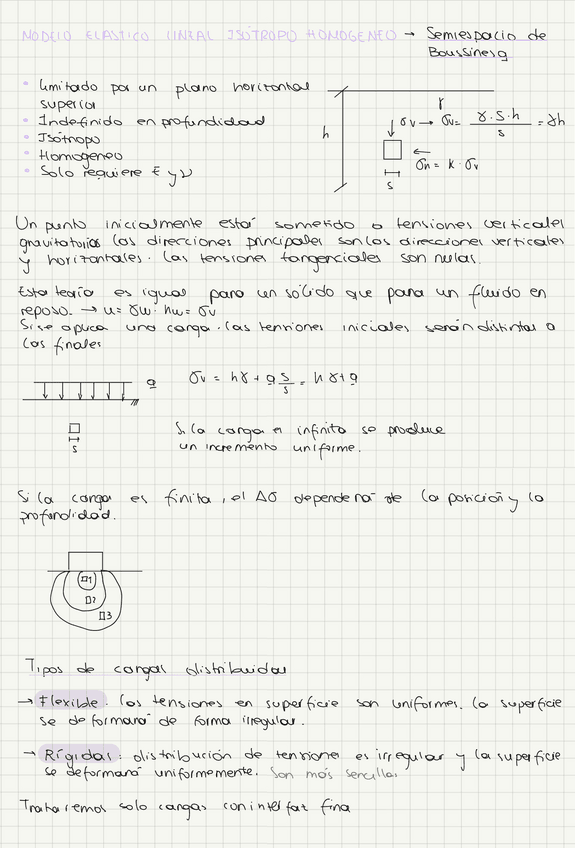 MODELO ELASTICO LINEAL ISÓTROPO HOMOGENEO → Semiespacio de
Boussinesq
• Limitado por un plano horizontal
superior
• Indefinido en profundidad
• Isótropo
• Homogeneo
• Solo requiere E y ν
h
γ
σv → σv = γ·S·h / s = γh
σh = K · σv
s
Un punto inicialmente está sometido a tensiones verticales
gravitatorias las direcciones principales son las direcciones verticales
y horizontales. Las tensiones tangenciales son nulas.
Esta teoría es igual para un sólido que para un fluido en
reposo. → u = γw · hw = σv
Si se aplica una carga. las tensiones iniciales serán distintas a
las finales
q
σv = hγ + q s/s = hγ + q
s
Si la carga es infinita se produce
un incremento uniforme.
Si la carga es finita, el Δσ dependerá de la posición y la
profundidad.
1
2
3
Tipos de cargas distribuidas
→ Flexible. las tensiones en superficie son uniformes. la superficie
se deformará de forma irregular.
→ Rígidas: distribución de tensiones es irregular y la superficie
se deformará uniformemente. Son más sencillas
Trataremos solo cargas con interfaz fina